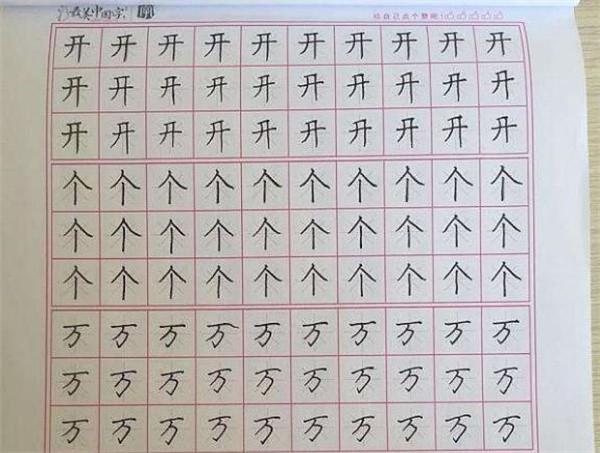 最美中国字 给自己点个赞吧!
开开开开开开开开开开
开开开开开开开开开开
开开开开开开开开开开
个个个个个个个个个个
个个个个个个个个个个
个个个个个个个个个个
万万万万万万万万万万
万万万万万万万万万万
万万万万万万万万万万